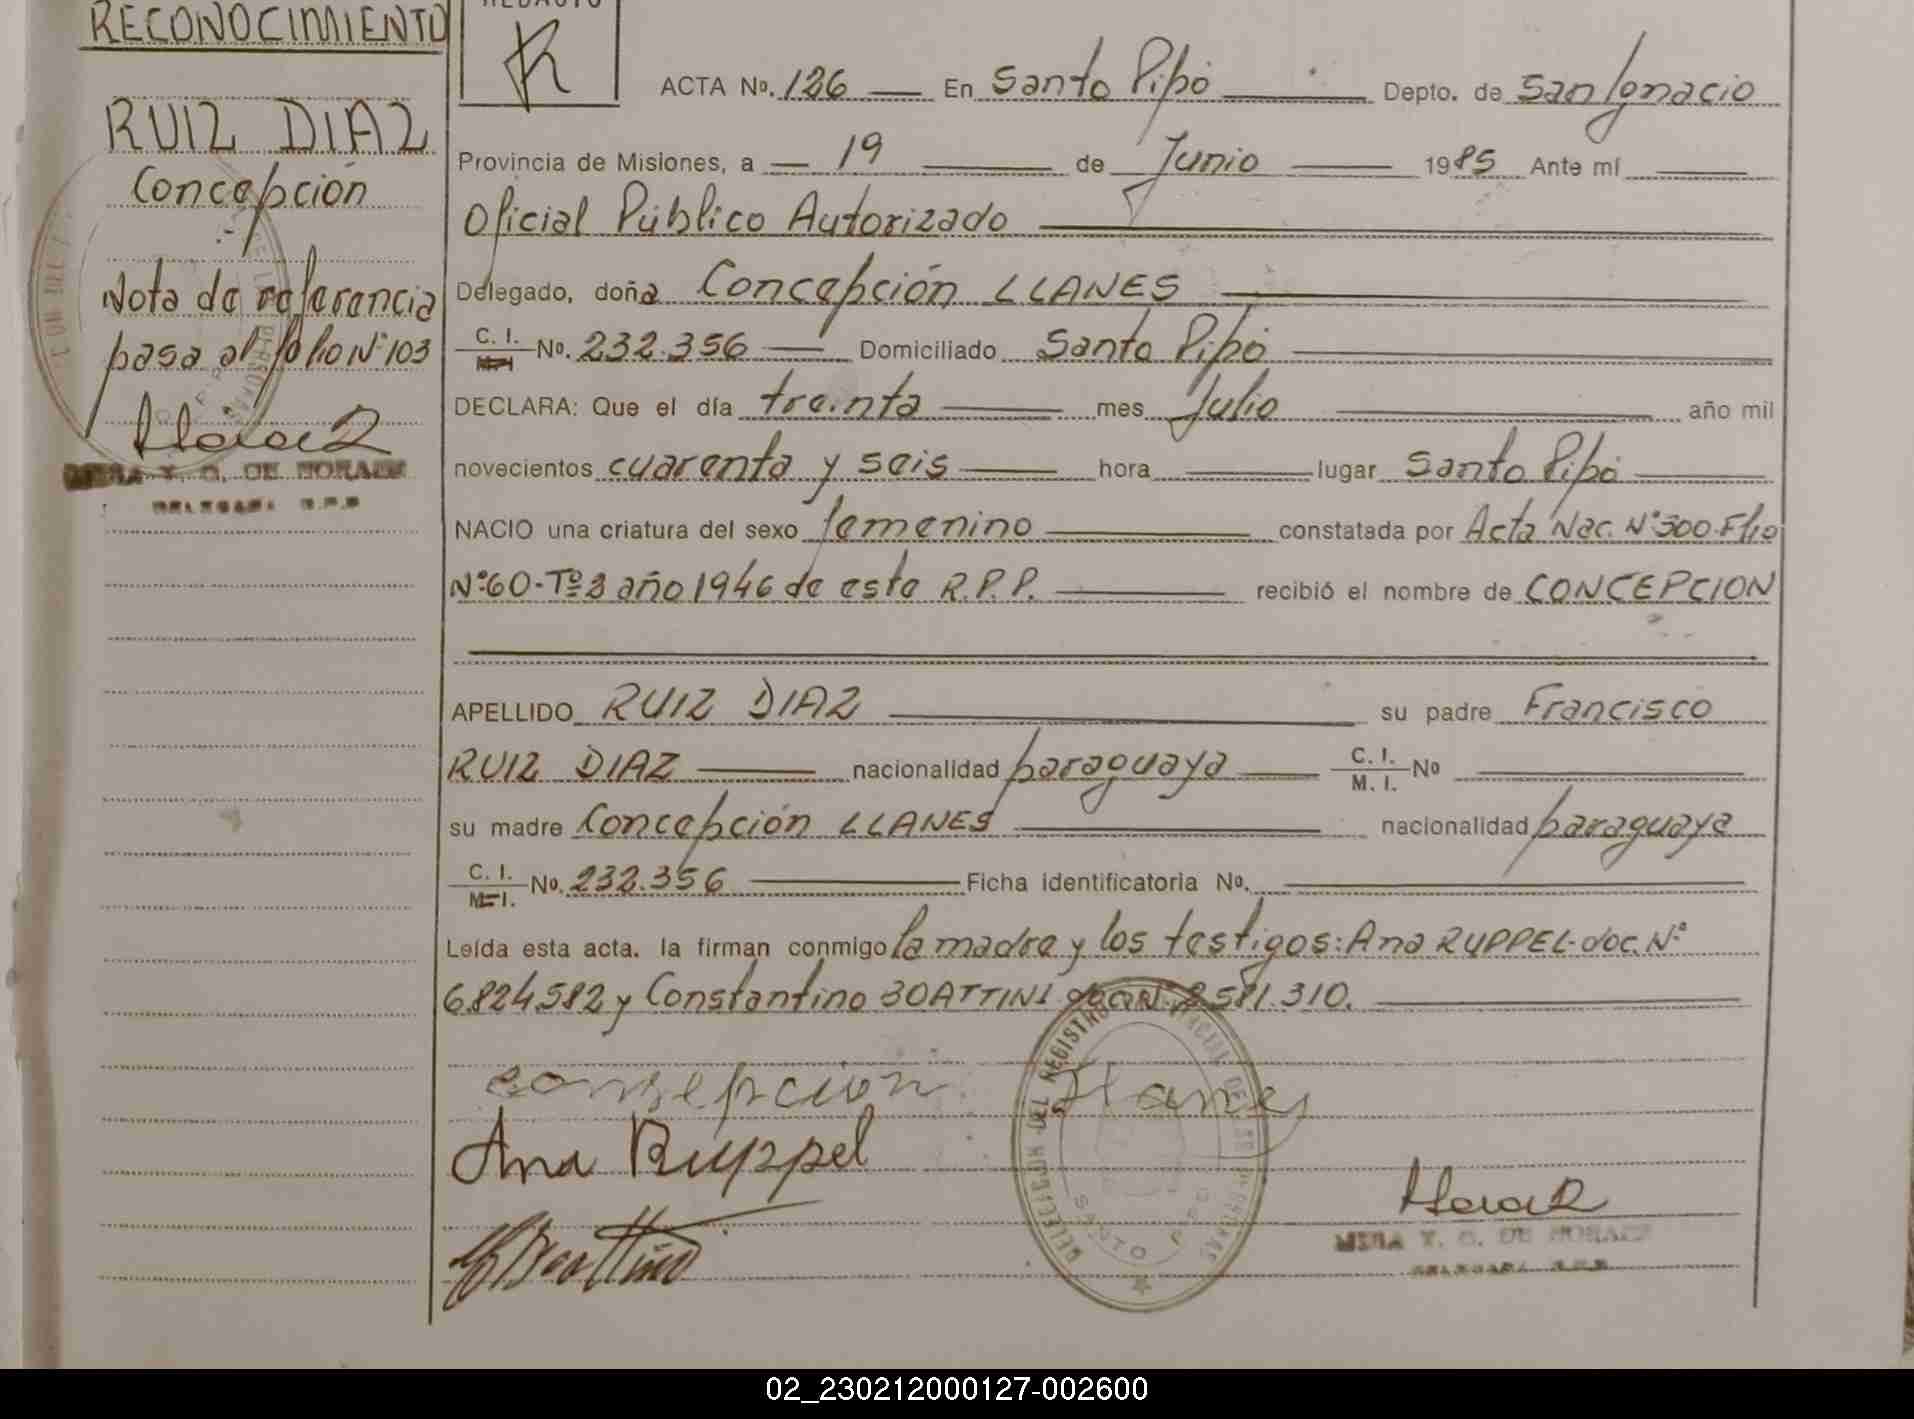 RECONOCIMIENTO
RUIZ DIAZ
Concepción
Nota de referencia
pasa al folio Nº 103
DELEGADA R.P.P.
R
ACTA Nº. 126 En Santo Pipó Depto. de San Ignacio
Provincia de Misiones, a 19 de Junio 1985 Ante mí
Oficial Público Autorizado
Delegado, doña Concepción LLANES
C. I. Nº. 232.356 Domiciliado Santo Pipó
DECLARA: Que el día treinta mes Julio año mil
novecientos cuarenta y seis hora lugar Santo Pipó
NACIO una criatura del sexo femenino constatada por Acta Nac. Nº 300-Flio
Nº 60-Tº 3 año 1946 de este R.P.P. recibió el nombre de CONCEPCION
APELLIDO RUIZ DIAZ su padre Francisco
RUIZ DIAZ nacionalidad paraguaya C. I. M. I. Nº
su madre Concepción LLANES nacionalidad paraguaya
C. I. M. I. Nº. 232.356 Ficha identificatoria Nº.
Leída esta acta. la firman conmigo la madre y los testigos: Ana RUPPEL-doc. Nº
6.824.582 y Constantino BOATTINI doc. Nº 2.581.310.
consepcion Llanes
Ana Ruppel
DELEGACION DEL REGISTRO PROVINCIAL DE LAS PERSONAS
SANTO PIPO
MIRA Y. G. DE MORAEZ
DELEGADA R.P.P.
02_230212000127-002600